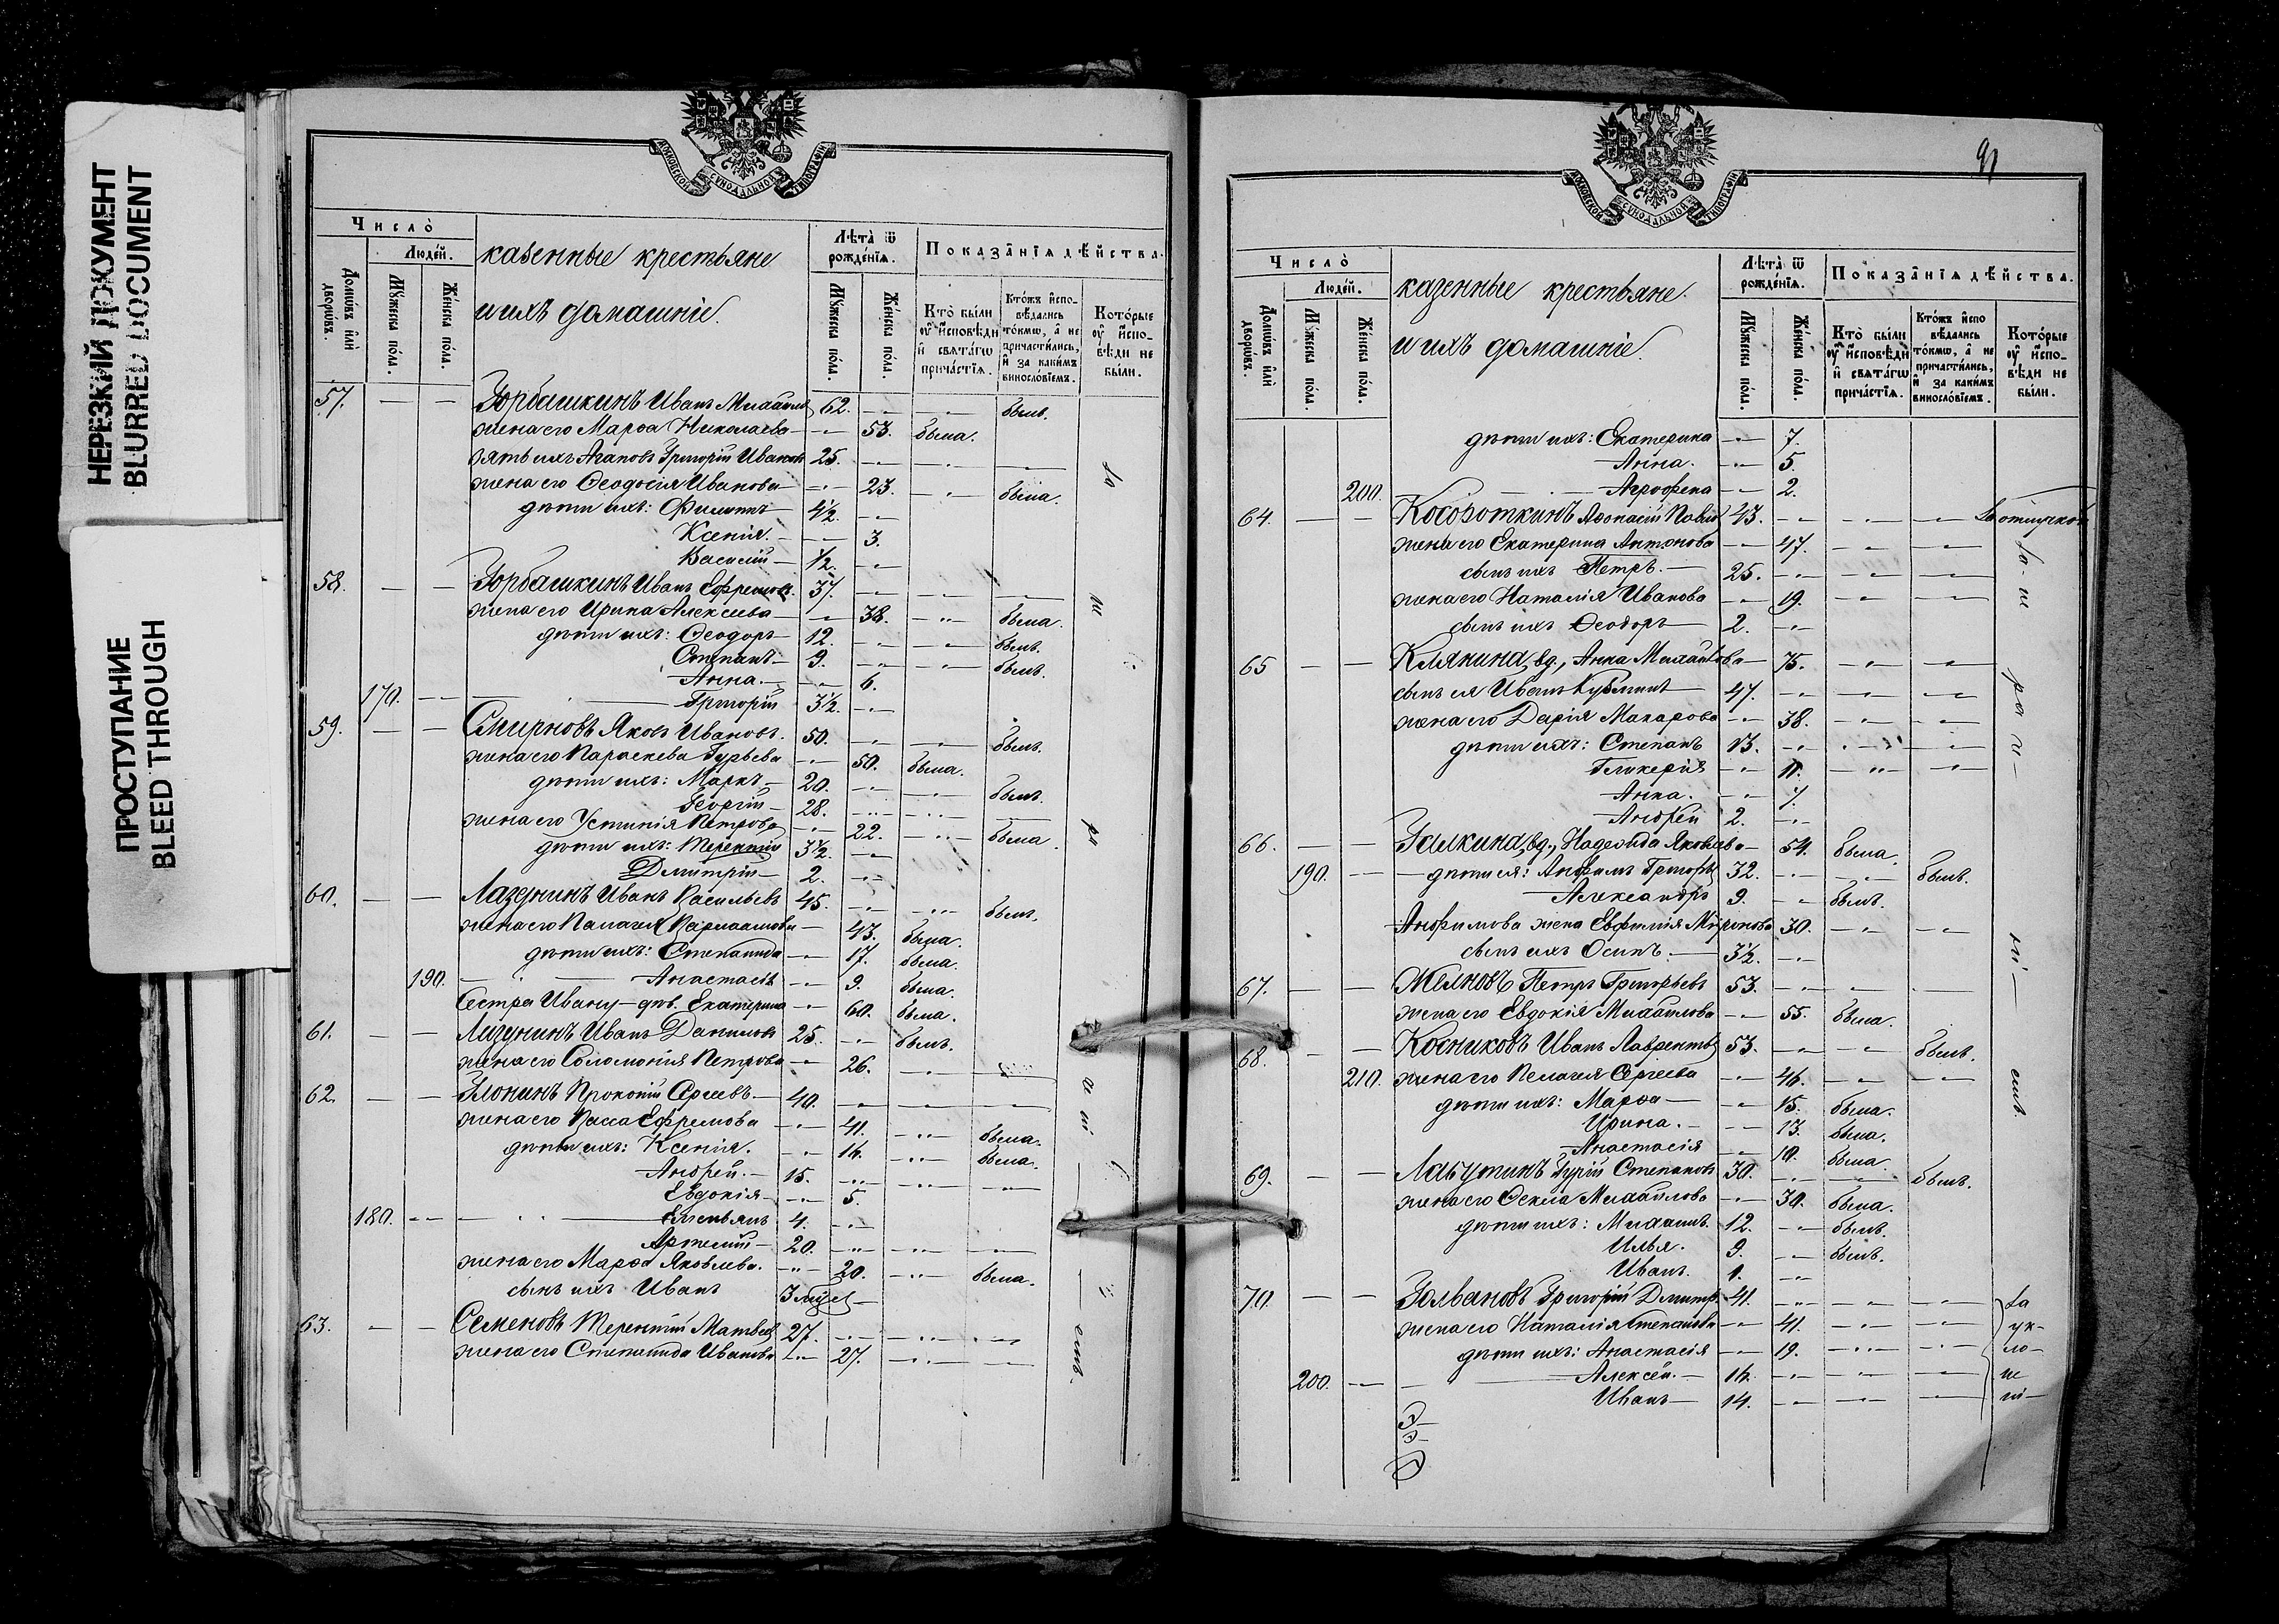 НЕРЕЗКИЙ ДОКУМЕНТ
BLURRED DOCUMENT
ПРОСТУПАНИЕ
BLEED THROUGH
МОСКОВСКОЙ СѴНОДАЛЬНОЙ ТИПОГРАФІИ
Число̀
Люде́й.
Домѡ́въ и҆лѝ дворѡ́въ.
Мꙋ́жеска по́ла.
Же́нска по́ла.
казенные крестьяне
и ихъ домашніе.
Лѣта̀ ѿ рожде́нїѧ.
Мꙋ́жеска по́ла.
Же́нска по́ла.
Показа̑нїѧ дѣ́йства.
Кто̀ бы́ли ᲂу҆ и҆́сповѣди и҆ свѧта́гѡ прича́стїѧ.
Кто́жъ и҆спо-
вѣ́дались
то́кмѡ, а҆ не
причасти́лись,
и҆ за каки́мъ
виносло́вїемъ.
Кото́рые
ᲂу҆ и҆́спо-
вѣди не
бы́ли.
57. — — Горбашкинъ Иванъ Михайловъ 62. — — былъ.
жена его Марѳа Николаева — 53. была.
зять ихъ Агаповъ Григорій Ивановъ 25. — — —
жена его Ѳеодосія Иванова — 23. — была.
дѣти ихъ: Филиппъ 4½. —
Ксенія. — 3.
Василій — ½. —
58. — — Горбашкинъ Иванъ Ефремовъ. 37. — — —
жена его Ирина Алексеева — 38. — была.
дѣти ихъ: Ѳеодоръ 12. — — былъ.
Степанъ — 9. — — былъ.
Анна. — — 6.
170. — Григорій 3½. —
59. — — Смирновъ Яковъ Ивановъ. 50. — — былъ.
жена его Параскева Гурьева — 50. была.
дѣти ихъ: Маркъ — 20. — — былъ.
Георгій — 28. — — —
жена его Устинія Петрова — 22. — была.
дѣти ихъ: Терентій 3½. —
Димитрій — 2. —
60. — — Лазунинъ Иванъ Васильевъ 45. — — былъ.
жена его Палагея Варлаамова — 43. была.
дѣти ихъ: Степанида — 17. была.
190. — Анастасія — 9. была.
Сестра Ивану — дѣв. Екатерина — 60. была.
61. — — Лазунинъ Иванъ Даниловъ 25. — былъ.
жена его Соломонія Петрова — 26. — —
62. — — Прокопій Сергеевъ — 40. — — —
жена его Васса Ефремова — 41. — была.
дѣти ихъ: Ксенія. — 16. — была.
Андрей. — 15. — — —
Евдокія — — 5.
180. — Емельянъ 4. —
Артемій — 20. — — —
жена его Марѳа Яковлева. — 20. — была.
сынъ ихъ Иванъ 3 мѣс. —
63. — — Семеновъ Терентій Матвеевъ 27. — — —
жена его Степанида Иванова — 27. — —
91
Число̀
Люде́й.
Домѡ́въ и҆лѝ дворѡ́въ.
Мꙋ́жеска по́ла.
Же́нска по́ла.
казенные крестьяне.
и ихъ домашніе.
Лѣта̀ ѿ рожде́нїѧ.
Показа̑нїѧ дѣ́йства.
дѣти ихъ: Екатерина — 7.
Анна. — 5.
200. Агрофена — 2.
64. — — Косороткинъ Аѳонасій Павло 43. — — — въ отлучкѣ
жена его Екатерина Антонова — 47. — —
сынъ ихъ Петръ. — 25. — — —
жена его Наталія Иванова — 19. — —
сынъ ихъ Ѳеодоръ — 2. —
65 — — Клякина, вд., Анна Михайлова — 75. — —
сынъ ея Иванъ Кузминъ — 47. — — —
жена его Дарія Макарова — 38. — —
дѣти ихъ: Степанъ 13. — — —
Гликерія — 11. — —
Анна. — 7.
Андрей 2. —
66. — — Галкина, вд., Надежда Яковлева — 54. была.
190. — дѣти ея: Анфимъ Григорьев 32. — — былъ.
Александръ 9. — былъ.
Анфимова жена Евфимія Миронова 30. — —
сынъ ихъ Осипъ. — 3½. —
67. — — Петръ Григорьевъ 53. — — —
жена его Евдокія Михайлова — 55. была.
68. — — Косниковъ Иванъ Лаврентьев 53. — — былъ.
210. жена его Пелагея Сергеева — 46. — —
дѣти ихъ: Марѳа — — 15. была.
Ирина. — — 13. была.
Анастасія — 10. была.
69. — — Лабутинъ Гурій Степановъ 30. — — былъ.
жена его Ѳекла Михайлова — 30. была.
дѣти ихъ: Михаилъ 12. — былъ.
Илья. 9. — былъ.
Иванъ. 1. —
70. — — Голвановъ Григорій Димитр. 41. — — — за
жена его Наталія Степанова — 41. — — ук-
дѣти ихъ: Анастасія — 19. — — ло-
200. — Алексѣй. — 16. — — — не
Иванъ — 14. — — — ні—